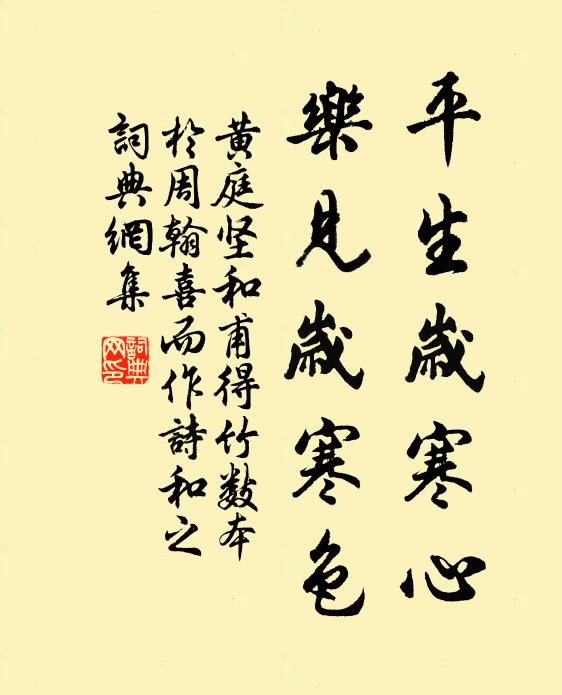 平生歲寒心
樂見歲寒色
黄庭坚和甫得竹数本
於周翰喜而作詩和之
詞典網集
詞典网印